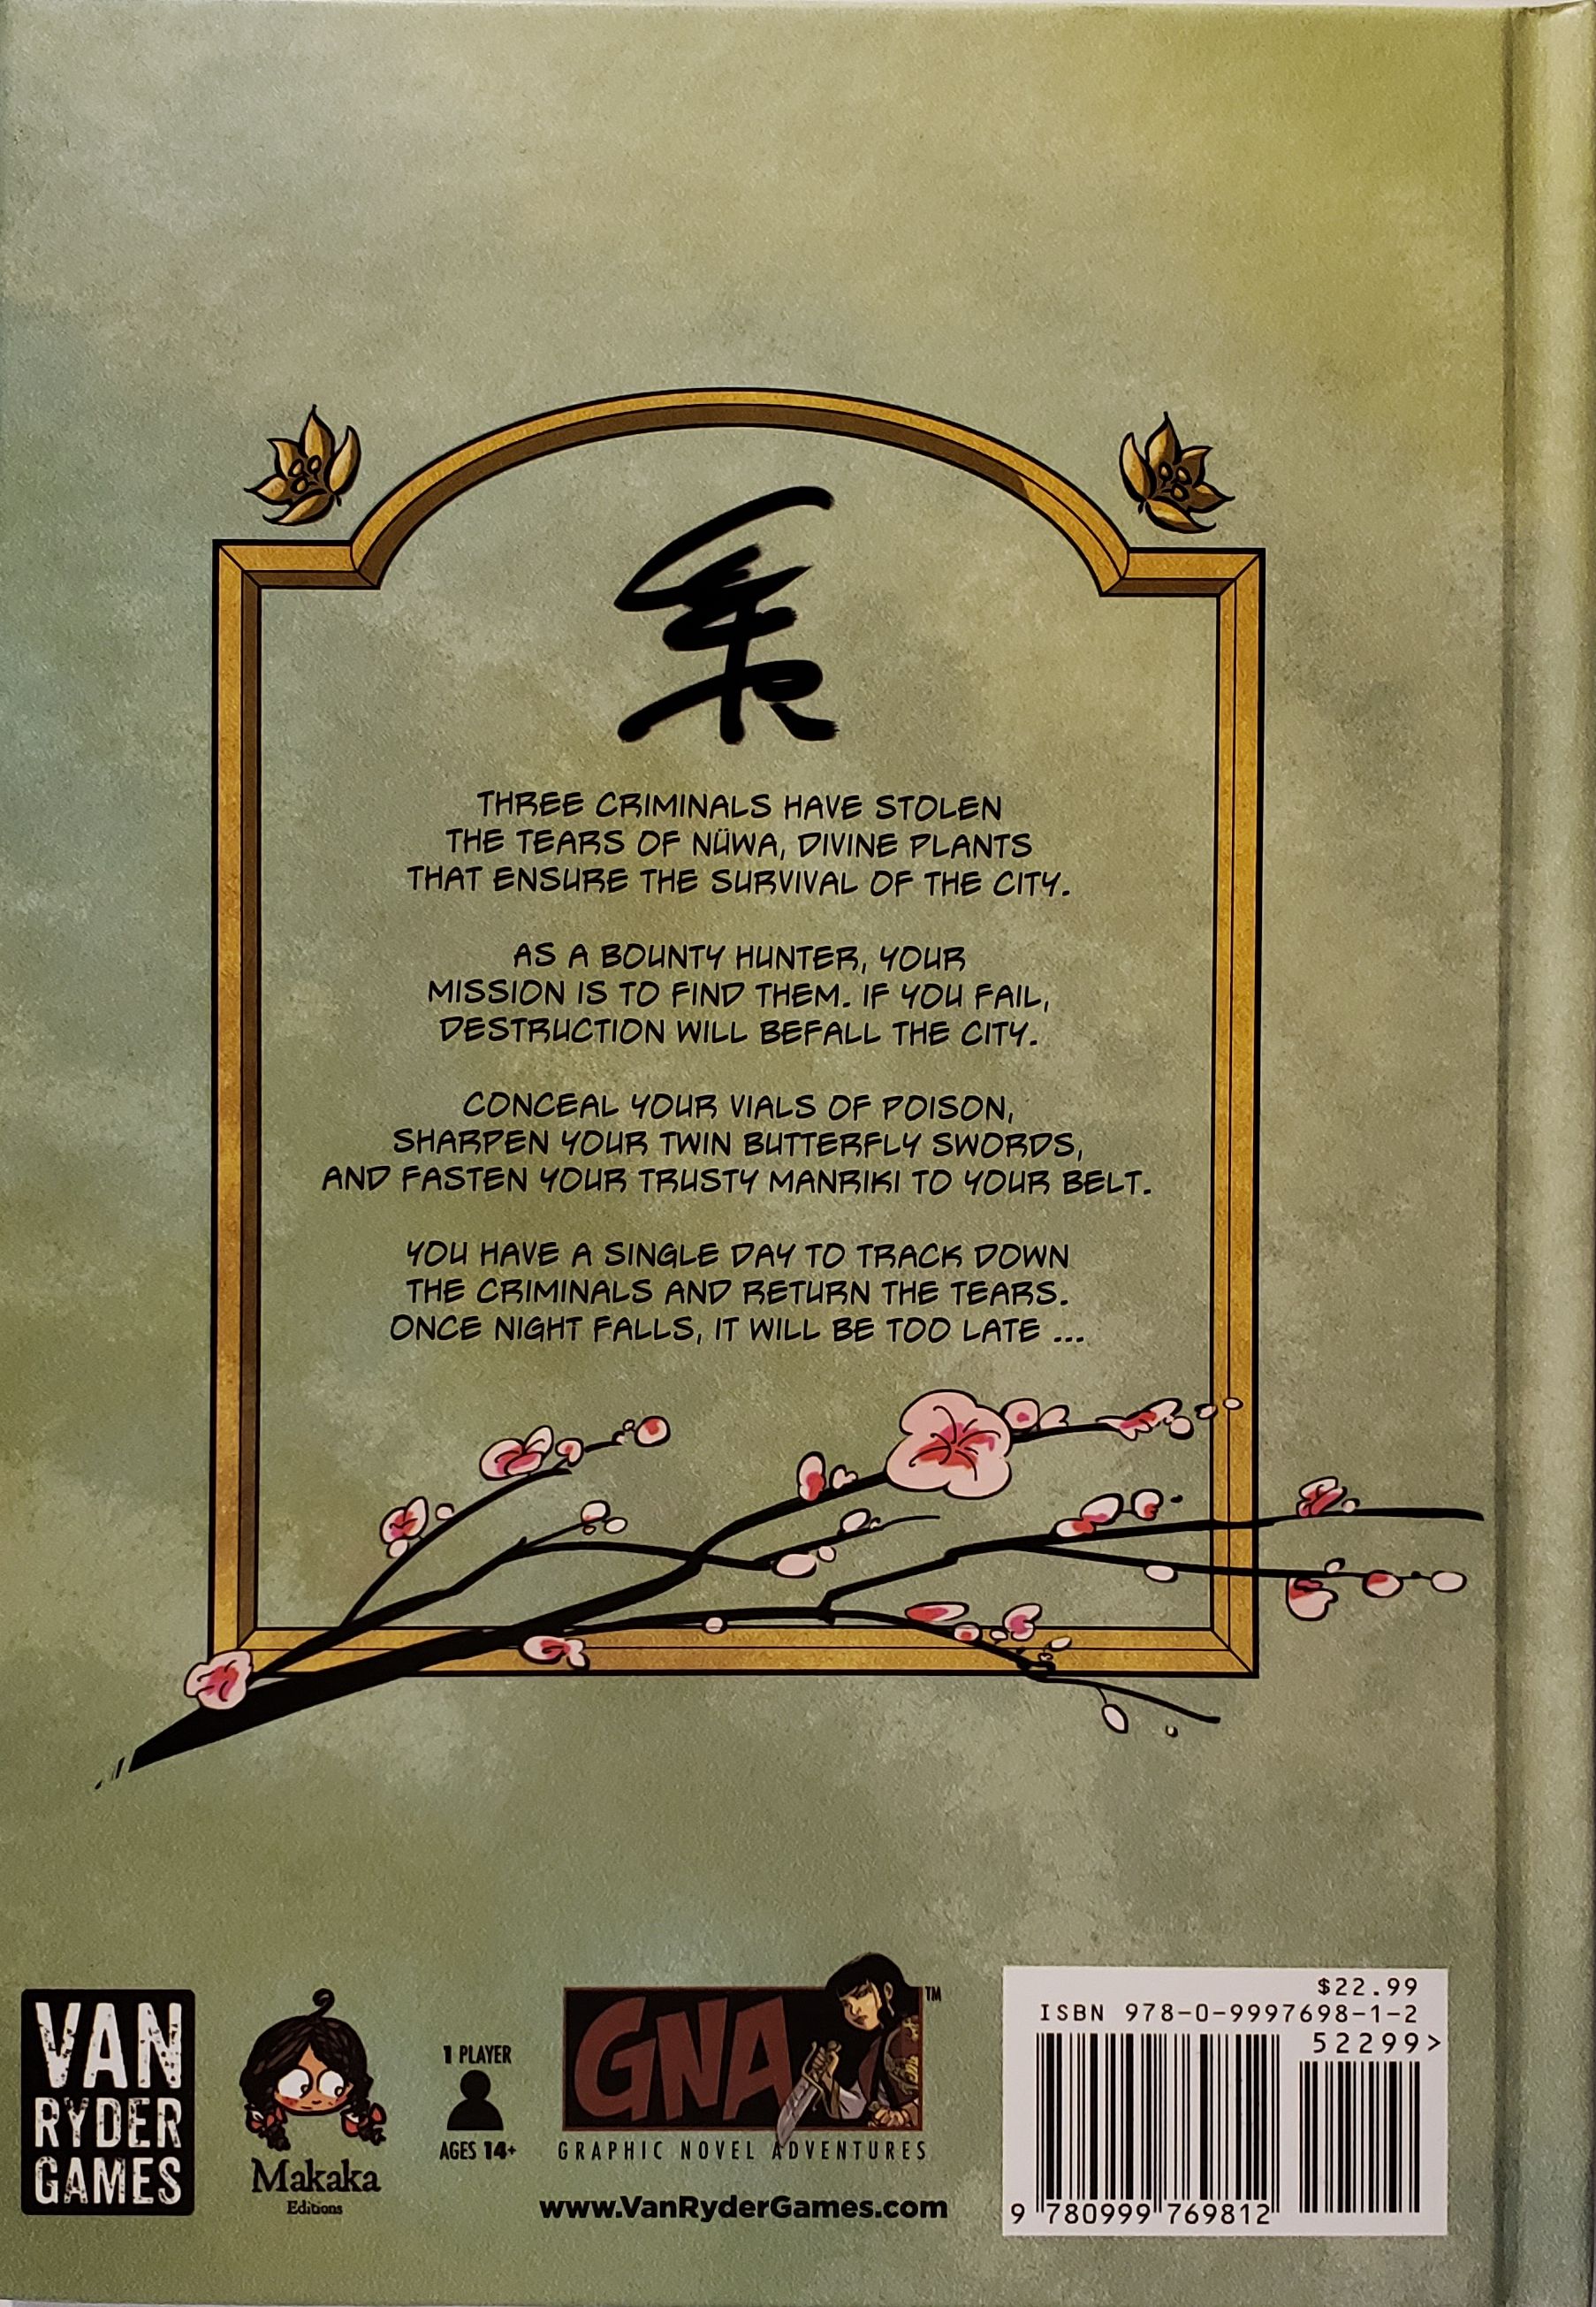 THREE CRIMINALS HAVE STOLEN
THE TEARS OF NÜWA, DIVINE PLANTS
THAT ENSURE THE SURVIVAL OF THE CITY.
AS A BOUNTY HUNTER, YOUR
MISSION IS TO FIND THEM. IF YOU FAIL,
DESTRUCTION WILL BEFALL THE CITY.
CONCEAL YOUR VIALS OF POISON,
SHARPEN YOUR TWIN BUTTERFLY SWORDS,
AND FASTEN YOUR TRUSTY MANRIKI TO YOUR BELT.
YOU HAVE A SINGLE DAY TO TRACK DOWN
THE CRIMINALS AND RETURN THE TEARS.
ONCE NIGHT FALLS, IT WILL BE TOO LATE ...
VAN
RYDER
GAMES
Makaka
Editions
1 PLAYER
AGES 14+
GNA
TM
GRAPHIC NOVEL ADVENTURES
www.VanRyderGames.com
$22.99
ISBN 978-0-9997698-1-2
52299>
9 780999 769812